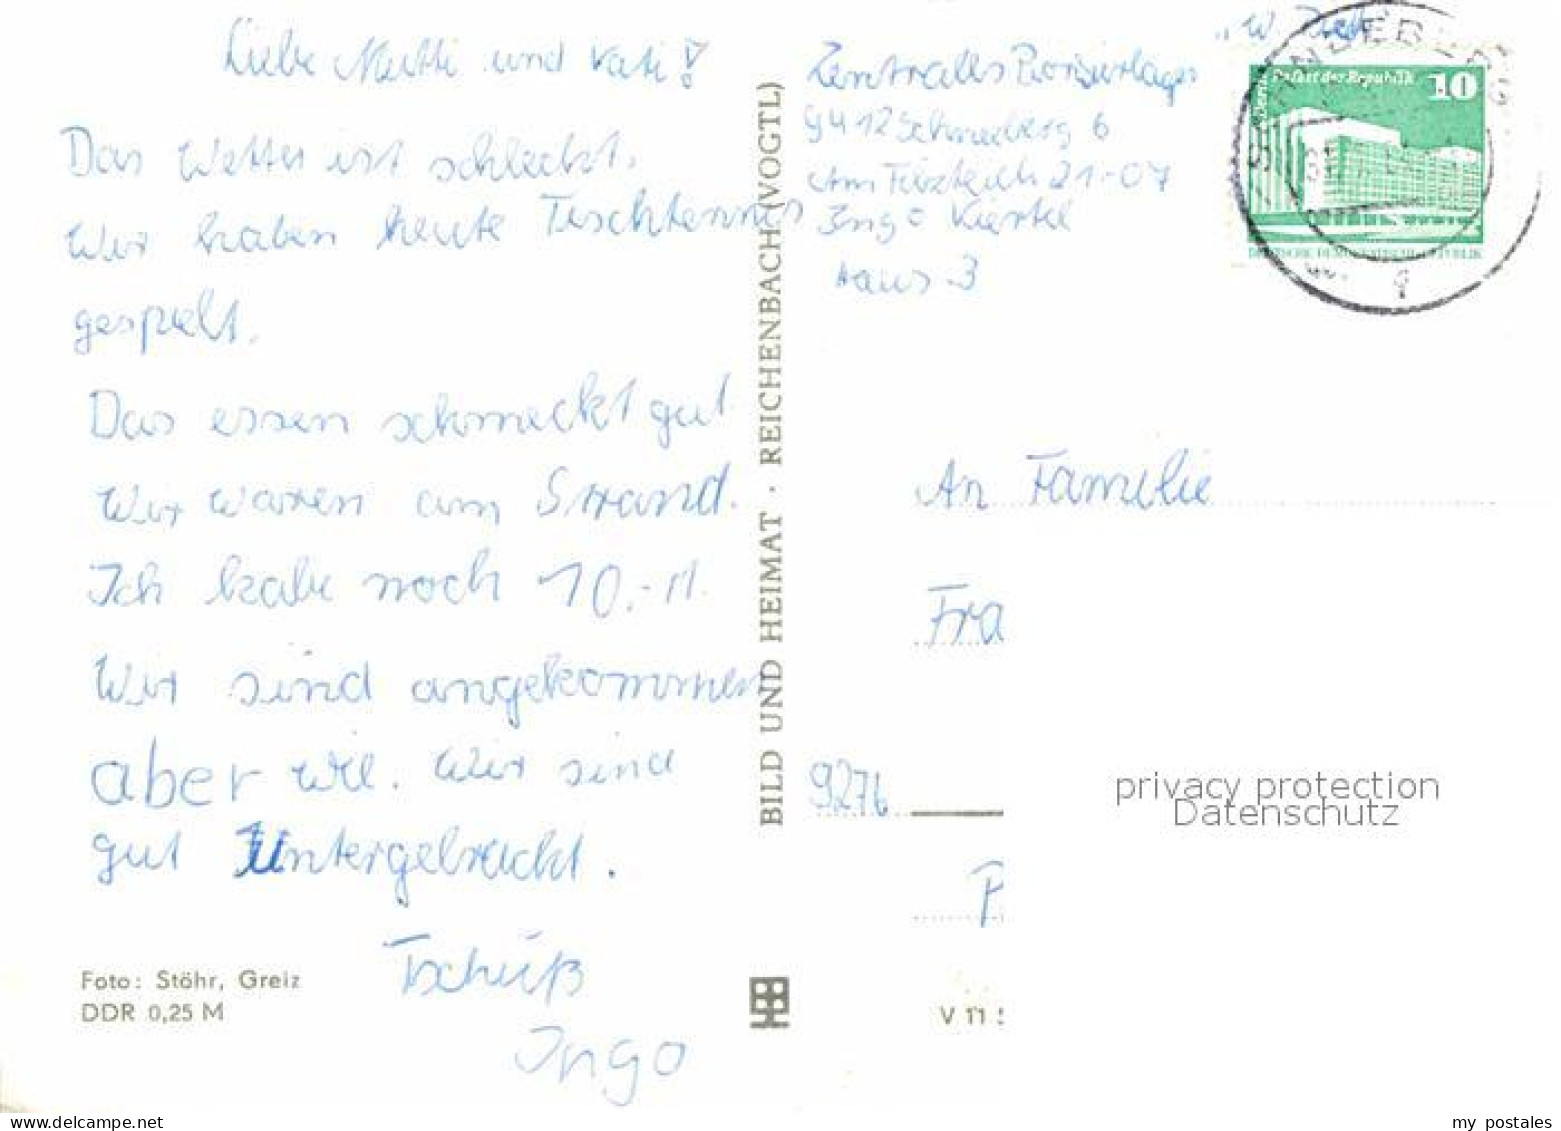 Liebe Mutti und Vati!
Das Wetter ist schlecht.
Wir haben heute Tischtennis
gespielt.
Das essen schmeckt gut
Wir waren am Strand.
Ich habe noch 10,- M.
Wir sind angekommen
aber wie. Wir sind
gut Untergebracht.
Tschüß
Ingo
Foto: Stöhr, Greiz
DDR 0,25 M
BILD UND HEIMAT · REICHENBACH (VOGTL)
"W. Pieck"
Zentrales Pionierlager
9412 Schneeberg 6
Am Filzteich 21-07
Ingo Viertel
Haus 3
Berlin, Palast der Republik
10
DEUTSCHE DEMOKRATISCHE REPUBLIK
An Familie
Fra
9276
P
V 11
privacy protection
Datenschutz
my postales